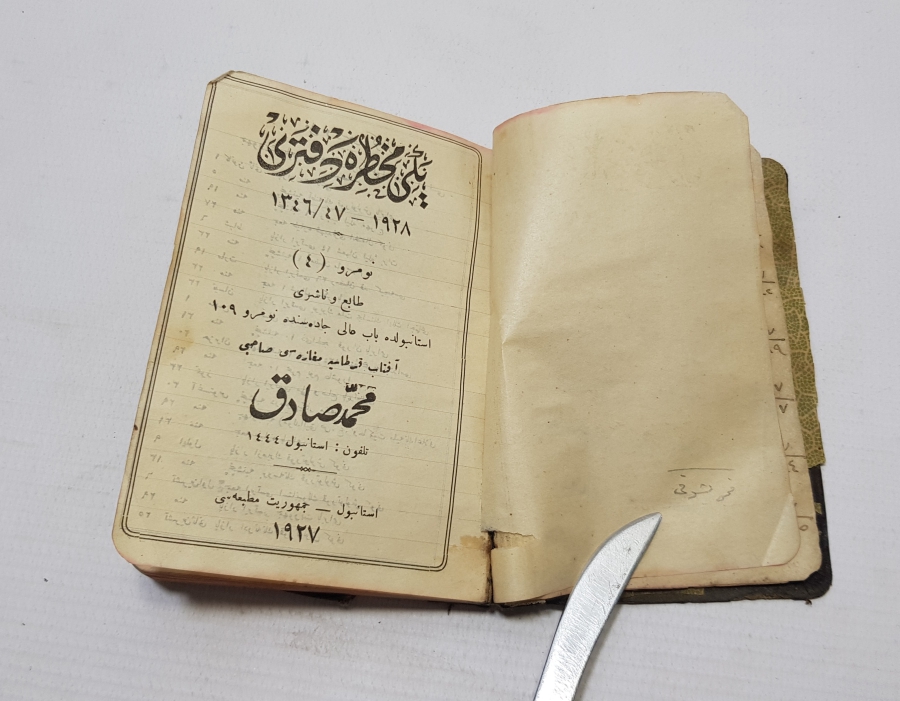 یكی مخطره دفتری
١٣٤٦/٤٧ — ١٩٢٨
نومرو (٤)
طابع و ناشری
استانبولده باب عالی جاده‌سنده نومرو ١٠٩
آفتاب قرطاسیه مغازه‌سی صاحبی
محمد صادق
تلفون : استانبول ١٤٤٤
استانبول — جمهوریت مطبعه‌سی
١٩٢٧